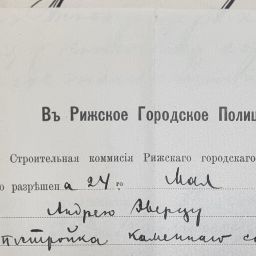 Въ Рижское Городское Полиц
Строительная коммисія Рижского городского
о разрѣшена 24го Мая
Андрею
пистройка каменнаго со